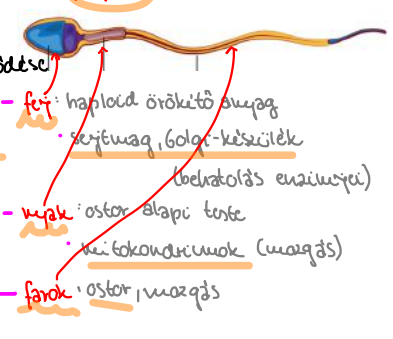 ödése
- fej: haploid örökítő anyag
· sejtmag, Golgi-készülék
(behatolás enzimjei)
- nyak: ostor alapi teste
· mitokondriumok (mozgás)
- farok: ostor, mozgás